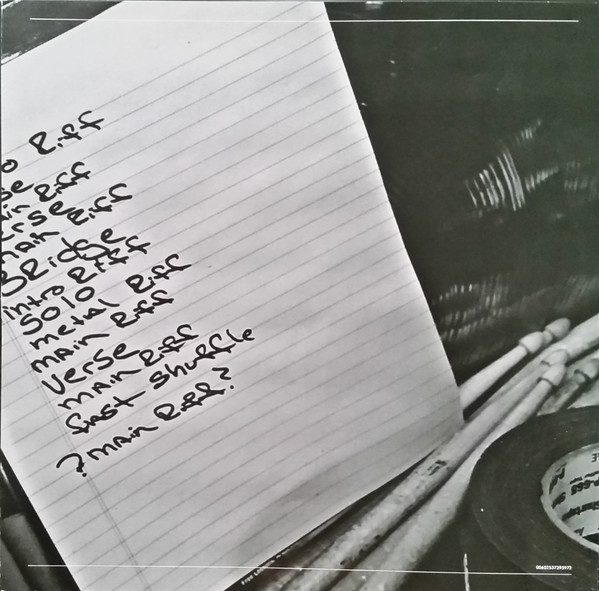 o Riff
se
ain Riff
erse
main Riff
BRidge
intro Riff
Solo
metal Riff
main Riff
Verse
main Riff
fast shuffle
? main Riff?
00602537395972